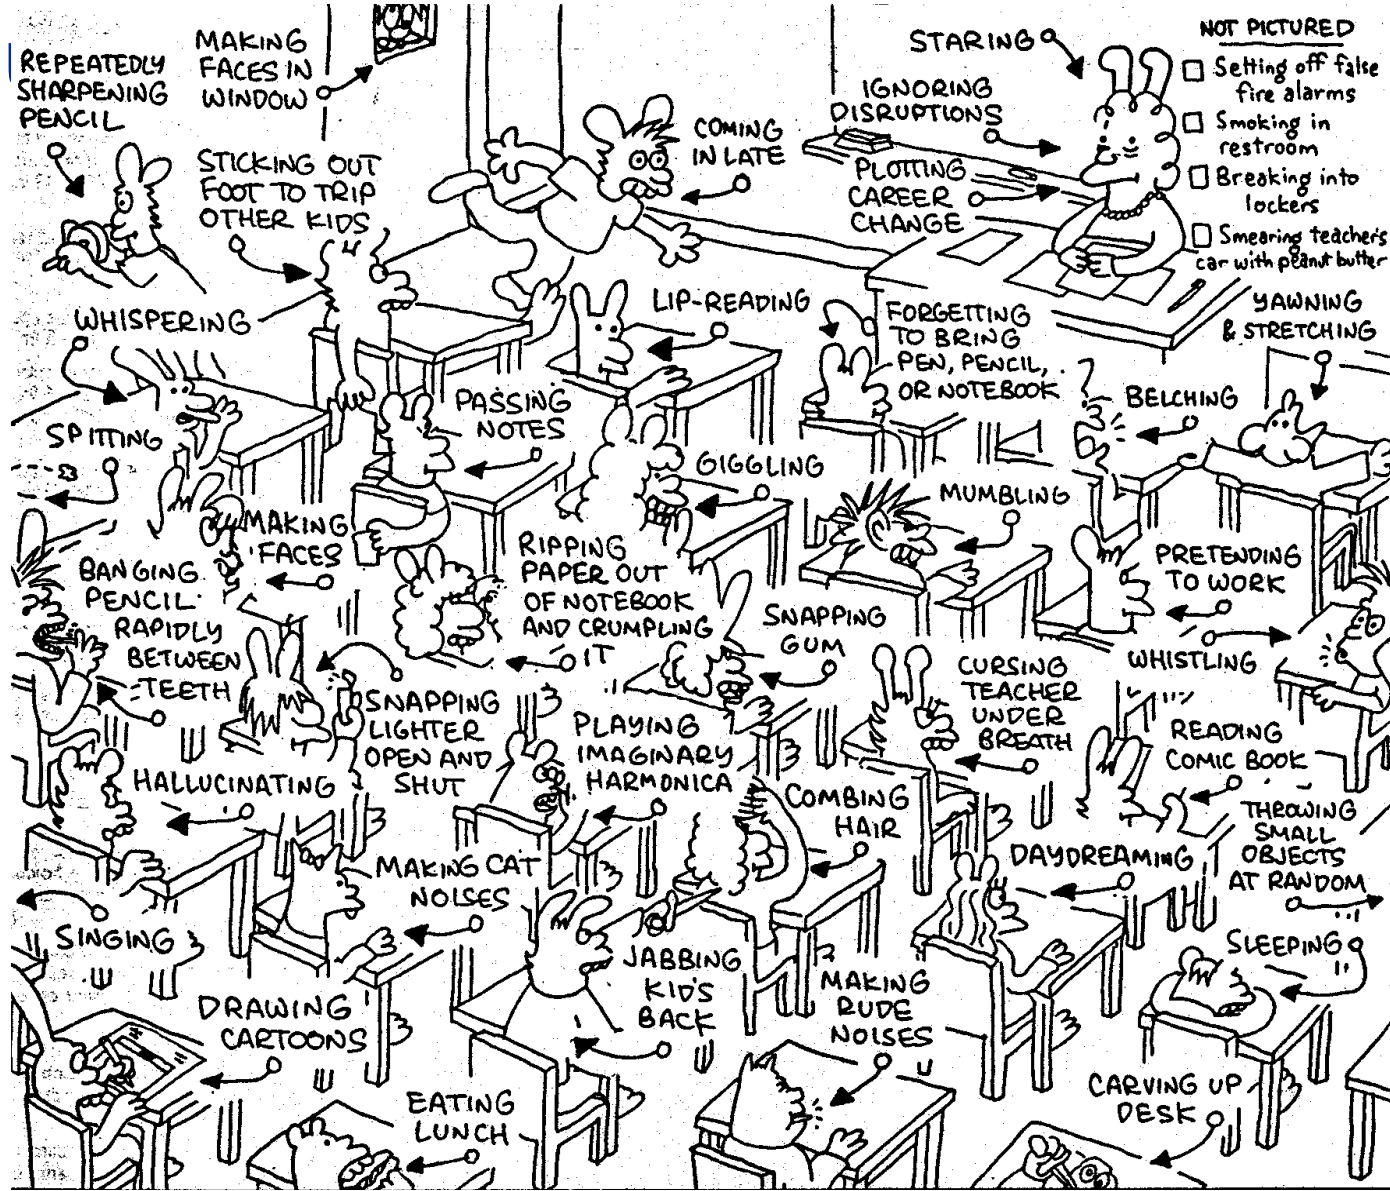 REPEATEDLY
SHARPENING
PENCIL
MAKING
FACES IN
WINDOW
STICKING OUT
FOOT TO TRIP
OTHER KIDS
COMING
IN LATE
STARING
IGNORING
DISRUPTIONS
PLOTTING
CAREER
CHANGE
NOT PICTURED
Setting off false
fire alarms
Smoking in
restroom
Breaking into
lockers
Smearing teacher's
car with peanut butter
WHISPERING
LIP-READING
FORGETTING
TO BRING
PEN, PENCIL,
OR NOTEBOOK
YAWNING
& STRETCHING
SPITTING
PASSING
NOTES
GIGGLING
BELCHING
MUMBLING
MAKING
FACES
BANGING
PENCIL
RAPIDLY
BETWEEN
TEETH
RIPPING
PAPER OUT
OF NOTEBOOK
AND CRUMPLING
IT
SNAPPING
GUM
PRETENDING
TO WORK
WHISTLING
SNAPPING
LIGHTER
OPEN AND
SHUT
PLAYING
IMAGINARY
HARMONICA
CURSING
TEACHER
UNDER
BREATH
READING
COMIC BOOK
HALLUCINATING
COMBING
HAIR
THROWING
SMALL
OBJECTS
AT RANDOM
MAKING CAT
NOISES
DAYDREAMING
SINGING
JABBING
KID'S
BACK
MAKING
RUDE
NOISES
SLEEPING
DRAWING
CARTOONS
EATING
LUNCH
CARVING UP
DESK